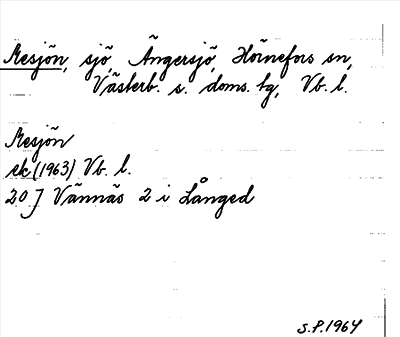 Mesjön, sjö, Ängersjö, Hörnefors sn,
Västerb. s. doms. tg, Vb. l.
Mesjön
ek (1963) Vb. l.
20 J Vännäs 2 i Långed
S.P. 1964